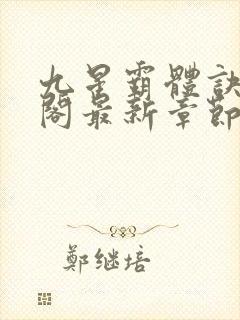 九星霸體訣
閣最新章節
鄭继培